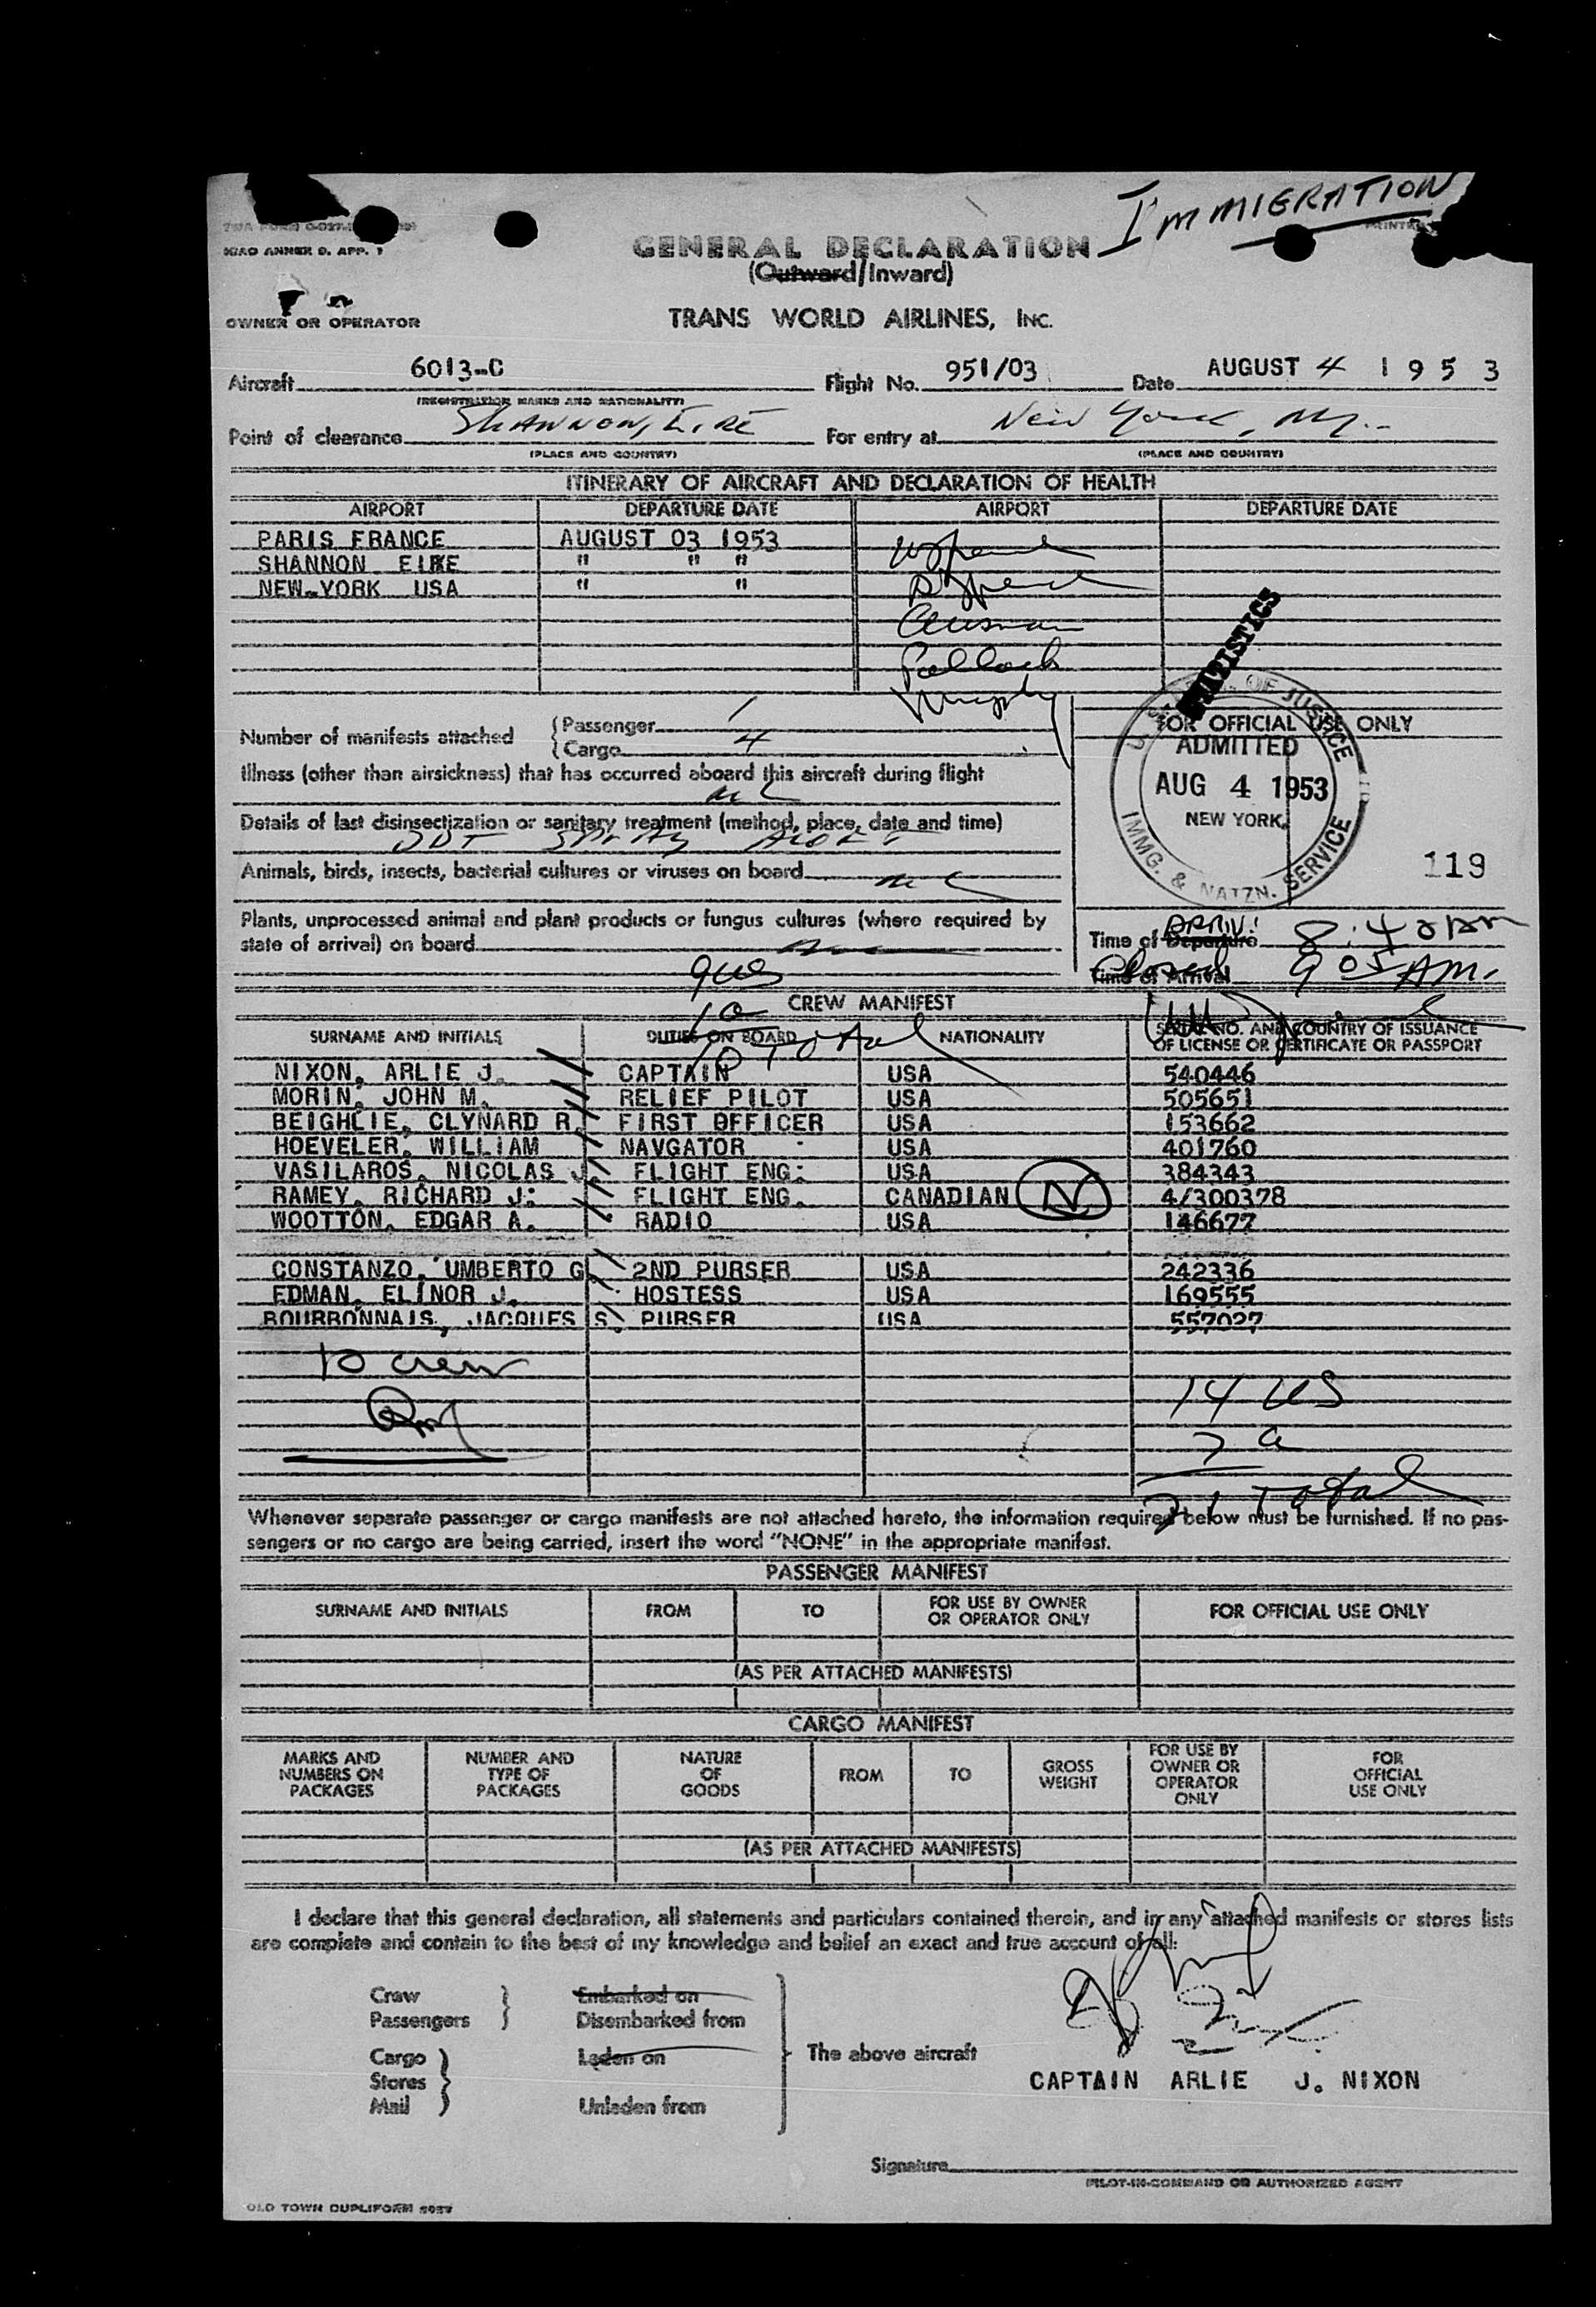 IMMIGRATION
ICAO ANNEX 9. APP. 1
GENERAL DECLARATION
(Outward/Inward)
OWNER OR OPERATOR
TRANS WORLD AIRLINES, INC.
Aircraft 6013-C Flight No. 951/03 Date AUGUST 4 1953
(REGISTRATION MARKS AND NATIONALITY)
Point of clearance SHANNON, EIRE For entry at New York, NY.
(PLACE AND COUNTRY) (PLACE AND COUNTRY)
ITINERARY OF AIRCRAFT AND DECLARATION OF HEALTH
AIRPORT DEPARTURE DATE AIRPORT DEPARTURE DATE
PARIS FRANCE AUGUST 03 1953
SHANNON EIRE " " "
NEW-YORK USA " "
Pollack
Murphy
STATISTICS
Number of manifests attached
Passenger 1
Cargo 4
FOR OFFICIAL USE ONLY
U.S. DEPT. OF JUSTICE
ADMITTED
AUG 4 1953
NEW YORK,
IMMG. & NATZN. SERVICE
119
Illness (other than airsickness) that has occurred aboard this aircraft during flight
nil
Details of last disinsectization or sanitary treatment (method, place, date and time)
DDT SPRAY
Animals, birds, insects, bacterial cultures or viruses on board nil
Plants, unprocessed animal and plant products or fungus cultures (where required by
state of arrival) on board
Time of Departure ARRIV. 8:40 AM
Time of Arrival Closed 9 05 AM.
9 US
1 a
10 Total
CREW MANIFEST
SURNAME AND INITIALS DUTIES ON BOARD NATIONALITY SERIAL NO. AND COUNTRY OF ISSUANCE
OF LICENSE OR CERTIFICATE OR PASSPORT
NIXON, ARLIE J. CAPTAIN USA 540446
MORIN, JOHN M. RELIEF PILOT USA 505651
BEIGHLIE, CLYNARD R. FIRST OFFICER USA 153662
HOEVELER, WILLIAM NAVGATOR USA 401760
VASILAROS, NICOLAS J. FLIGHT ENG. USA 384343
RAMEY, RICHARD J. FLIGHT ENG. CANADIAN N 4/300378
WOOTTON, EDGAR A. RADIO USA 146677
CONSTANZO, UMBERTO G. 2ND PURSER USA 242336
EDMAN, ELINOR J. HOSTESS USA 169555
BOURBONNAIS, JACQUES S. PURSER USA 557027
10 crew
14 US
7 a
21 Total
Whenever separate passenger or cargo manifests are not attached hereto, the information required below must be furnished. If no pas-
sengers or no cargo are being carried, insert the word "NONE" in the appropriate manifest.
PASSENGER MANIFEST
SURNAME AND INITIALS FROM TO FOR USE BY OWNER OR OPERATOR ONLY FOR OFFICIAL USE ONLY
(AS PER ATTACHED MANIFESTS)
CARGO MANIFEST
MARKS AND NUMBERS ON PACKAGES NUMBER AND TYPE OF PACKAGES NATURE OF GOODS FROM TO GROSS WEIGHT FOR USE BY OWNER OR OPERATOR ONLY FOR OFFICIAL USE ONLY
(AS PER ATTACHED MANIFESTS)
I declare that this general declaration, all statements and particulars contained therein, and in any attached manifests or stores lists
are complete and contain to the best of my knowledge and belief an exact and true account of all:
Crew Embarked on
Passengers Disembarked from
Cargo Laden on The above aircraft
Stores
Mail Unladen from
CAPTAIN ARLIE J. NIXON
Signature
PILOT-IN-COMMAND OR AUTHORIZED AGENT
OLD TOWN DUPLIFORM